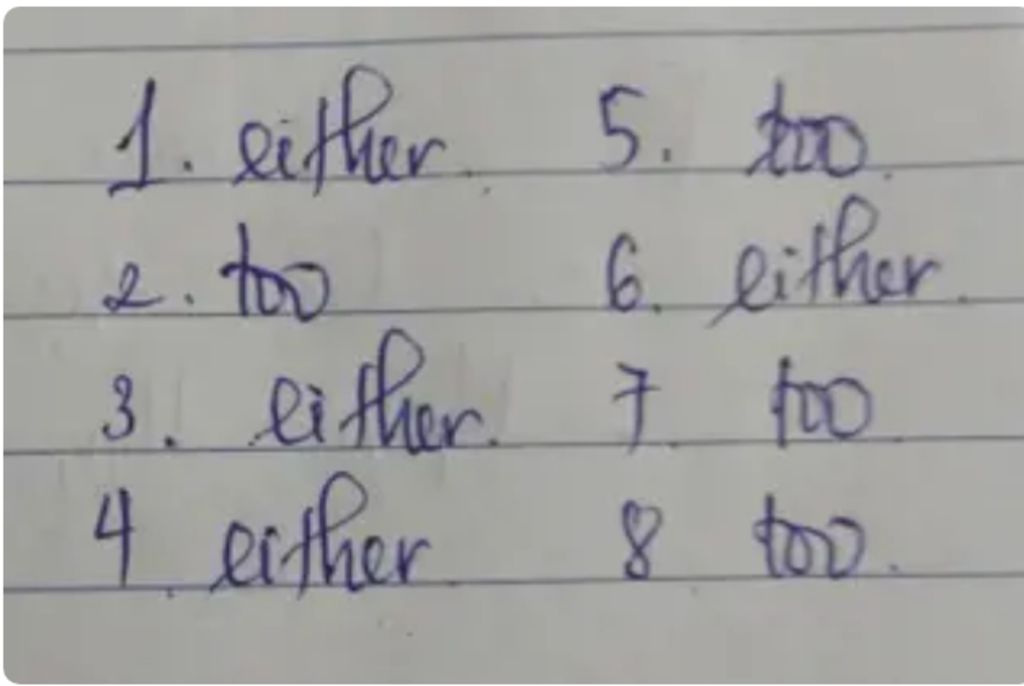 1. either. 5. too.
2. too 6. either.
3. either. 7. too.
4. either 8. too.